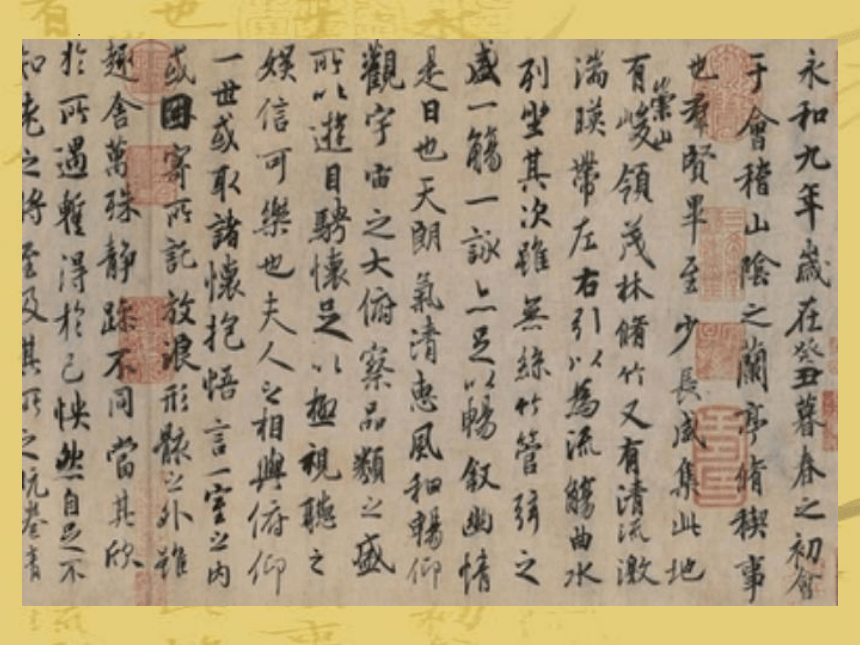 永和九年歲在癸丑暮春之初會
于會稽山陰之蘭亭脩稧事
也羣賢畢至少長咸集此地
有崇山峻領茂林脩竹又有清流激
湍暎帶左右引以為流觴曲水
列坐其次雖無絲竹管弦之
盛一觴一詠亦足以暢叙幽情
是日也天朗氣清惠風和暢仰
觀宇宙之大俯察品類之盛
所以遊目騁懷足以極視聽之
娛信可樂也夫人之相與俯仰
一世或取諸懷抱悟言一室之內
或因寄所託放浪形骸之外雖
趣舍萬殊静躁不同當其欣
於所遇暫得於己怏然自足不
知老之將至及其所之既惓情